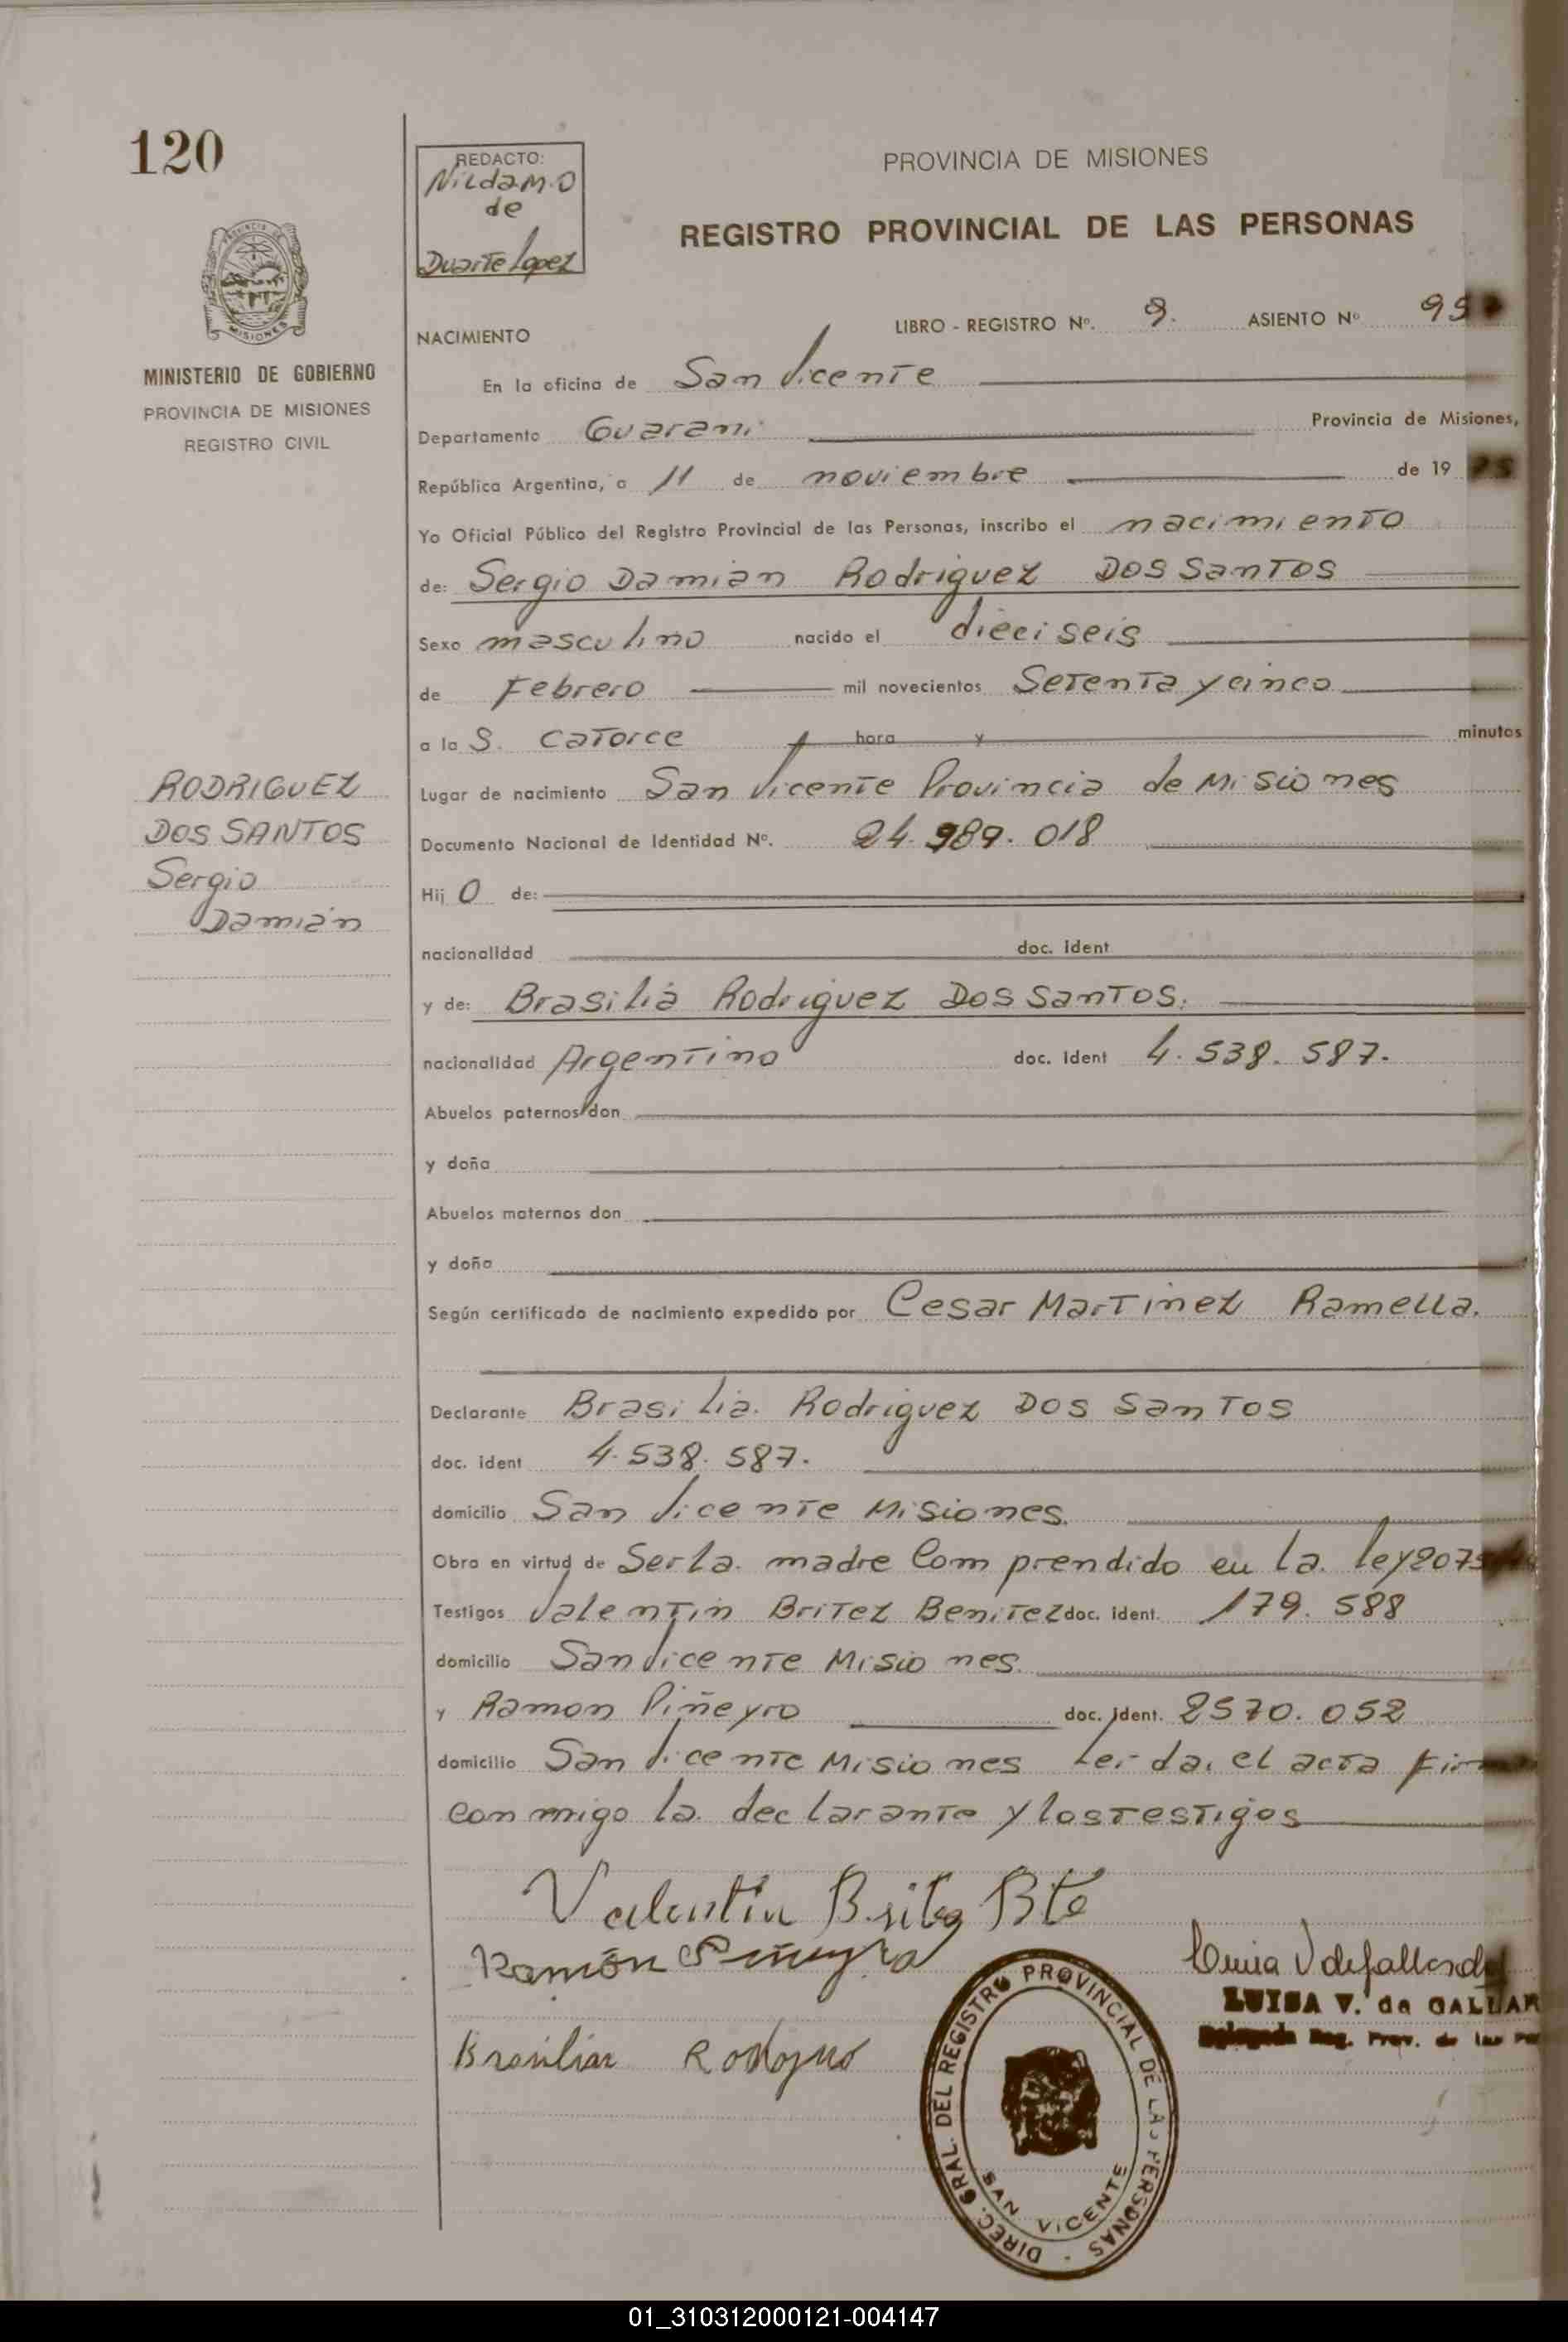 120
REDACTO:
Nilda M. O
de
Duarte Lopez
PROVINCIA DE MISIONES
REGISTRO PROVINCIAL DE LAS PERSONAS
PROVINCIA DE
MISIONES
MINISTERIO DE GOBIERNO
PROVINCIA DE MISIONES
REGISTRO CIVIL
LIBRO - REGISTRO Nº. 9. ASIENTO Nº
NACIMIENTO
En la oficina de San Vicente
Departamento Guarani Provincia de Misiones,
República Argentina, a 11 de noviembre de 19 75
Yo Oficial Público del Registro Provincial de las Personas, inscribo el nacimiento
de: Sergio Damian Rodriguez Dos Santos
Sexo masculino nacido el dieciseis
de Febrero mil novecientos Setenta y cinco
a la S. catorce hora y minutos
Lugar de nacimiento San Vicente Provincia de Misiones
Documento Nacional de Identidad Nº. 24.989.018
Hij o de:
nacionalidad doc. ident
y de: Brasilia Rodriguez Dos Santos.
nacionalidad Argentino doc. ident 4.538.587.
Abuelos paternos don
y doña
Abuelos maternos don
y doña
Según certificado de nacimiento expedido por Cesar Martinez Ramella.
Declarante Brasilia. Rodriguez Dos Santos
doc. ident 4.538.587.
domicilio San Vicente Misiones.
Obra en virtud de Ser la. madre Comprendido en la. ley
Testigos Valentin Britez Benitez doc. ident. 179.588
domicilio San Vicente Misiones.
y Ramon Piñeyro doc. ident. 2570.052
domicilio San Vicente Misiones Leida. el acta
conmigo la. declarante y los testigos
RODRIGUEZ
DOS SANTOS
Sergio
Damián
Valentin Britez Bte
Ramón Piñeyro
Brasilia Rodriguez
LUISA V. de GALLAR
Reg. Prov. de las
DIREC. GRAL. DEL REGISTRO PROVINCIAL DE LAS PERSONAS -
SAN VICENTE
01_310312000121-004147